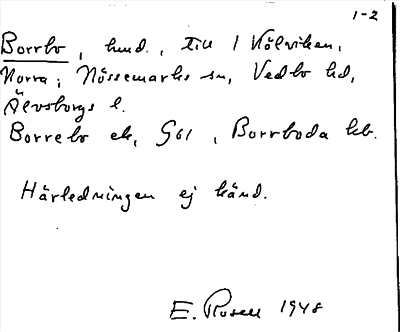 1-2
Borrbo, hmd., till 1 Kölviken,
Norra; Nössemarks sn, Vedbo hd,
Älvsborgs l.
Borrebo ek, G61, Borrboda kb.
Härledningen ej känd.
E. Rosell 1948